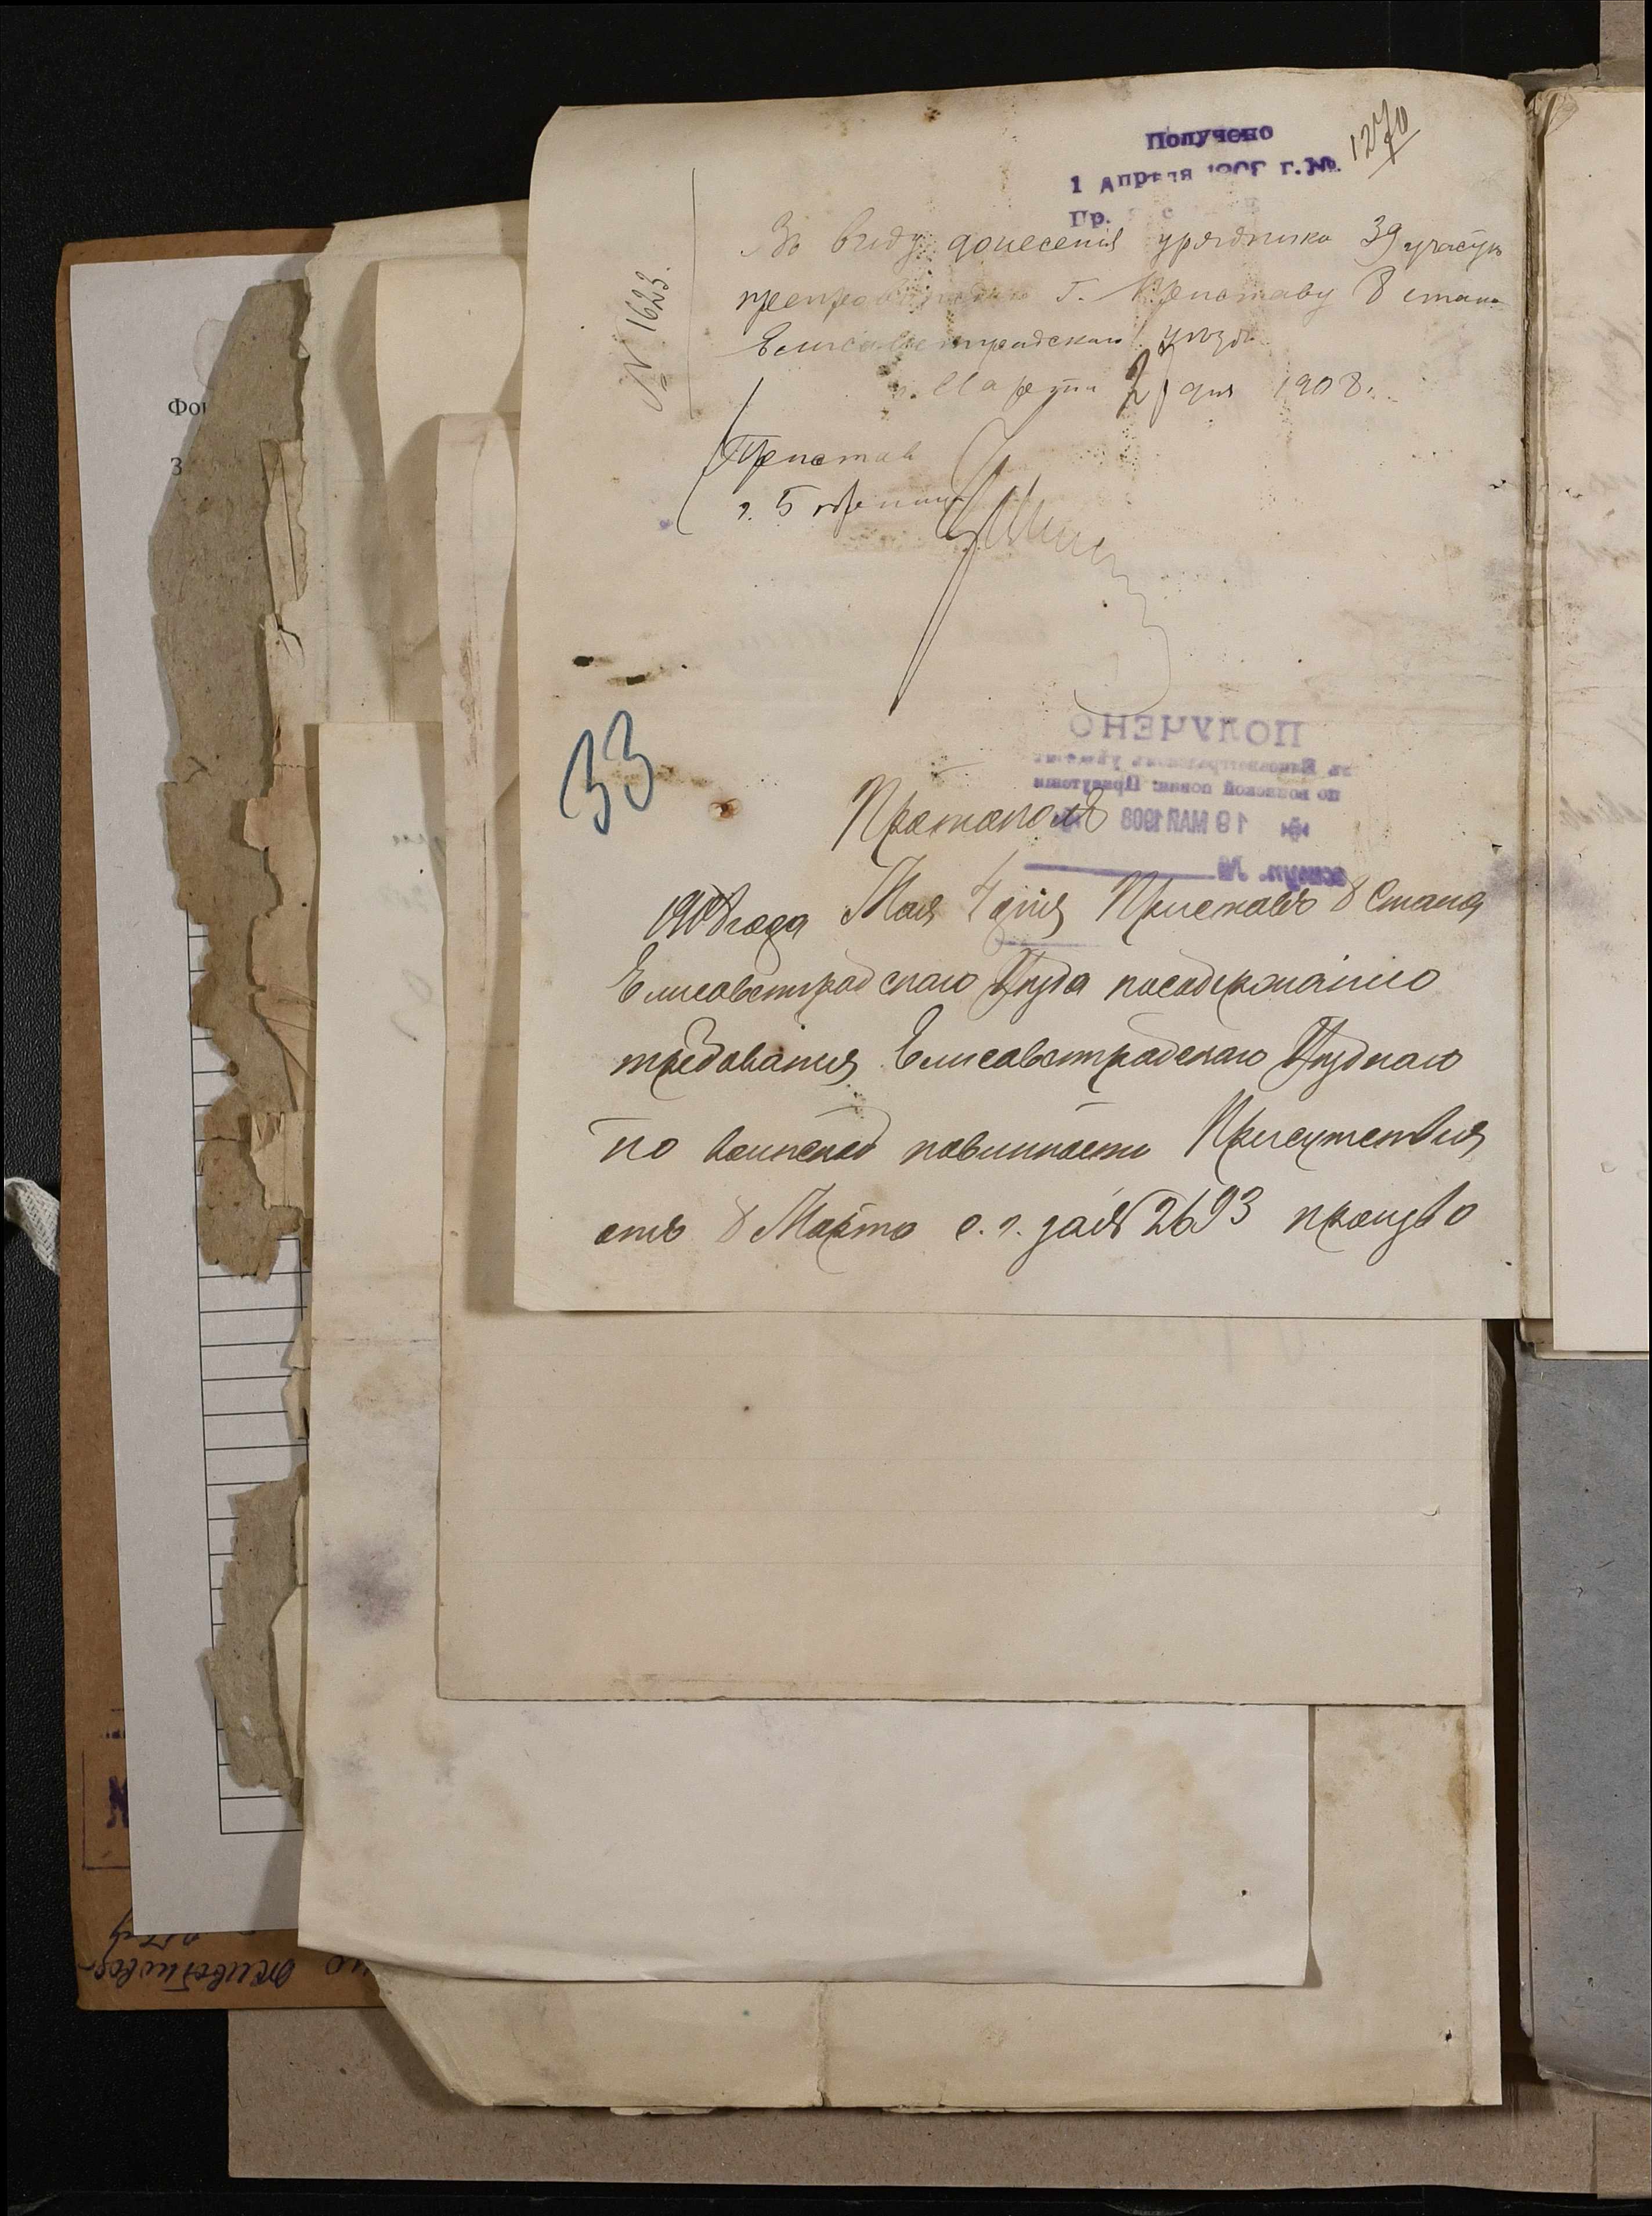 Получено
1 Апреля 1908 г. №
1270
Пр.
№ 1623.
Въ виду донесенія урядника 39 участка
препровождаю Г. Приставу 8 стана
Елисаветградскаго уѣзда
Марта 27 дня 1908 г.
Приставъ
33
ПОЛУЧЕНО
въ Елисаветградскомъ уѣздн.
по воинской повин. Присутствіи
19 МАЯ 1908
вступ. №
Протоколъ
1908 года Мая 4 дня Приставъ 8 Стана
Елисаветградскаго Уѣзда посодержанію
требованія Елисаветградскаго Уѣзднаго
по воинской повинности Присутствія
отъ 8 Марта с. г. за № 2693 произво
Фо
З